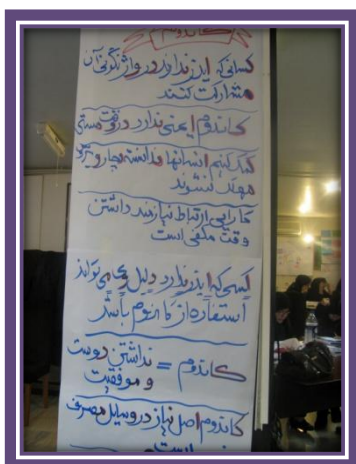 کاندوم
کسانی که ایدز ندارند در واژگونی آن
مشارکت کنند
کاندوم ایمنی ندارد در وقت مستی
کمک کنیم انسانها ندانسته دچار ویروس
مهلک نشوند
کارایی ارتباط نیازمند داشتن
وقت مکفی است
کسی که ایدز ندارد دلیل می تواند
استفاده از کاندوم باشد
کاندوم = نداشتن دوست
و موفقیت
کاندوم اصل نیاز در وسایل مصرف
است